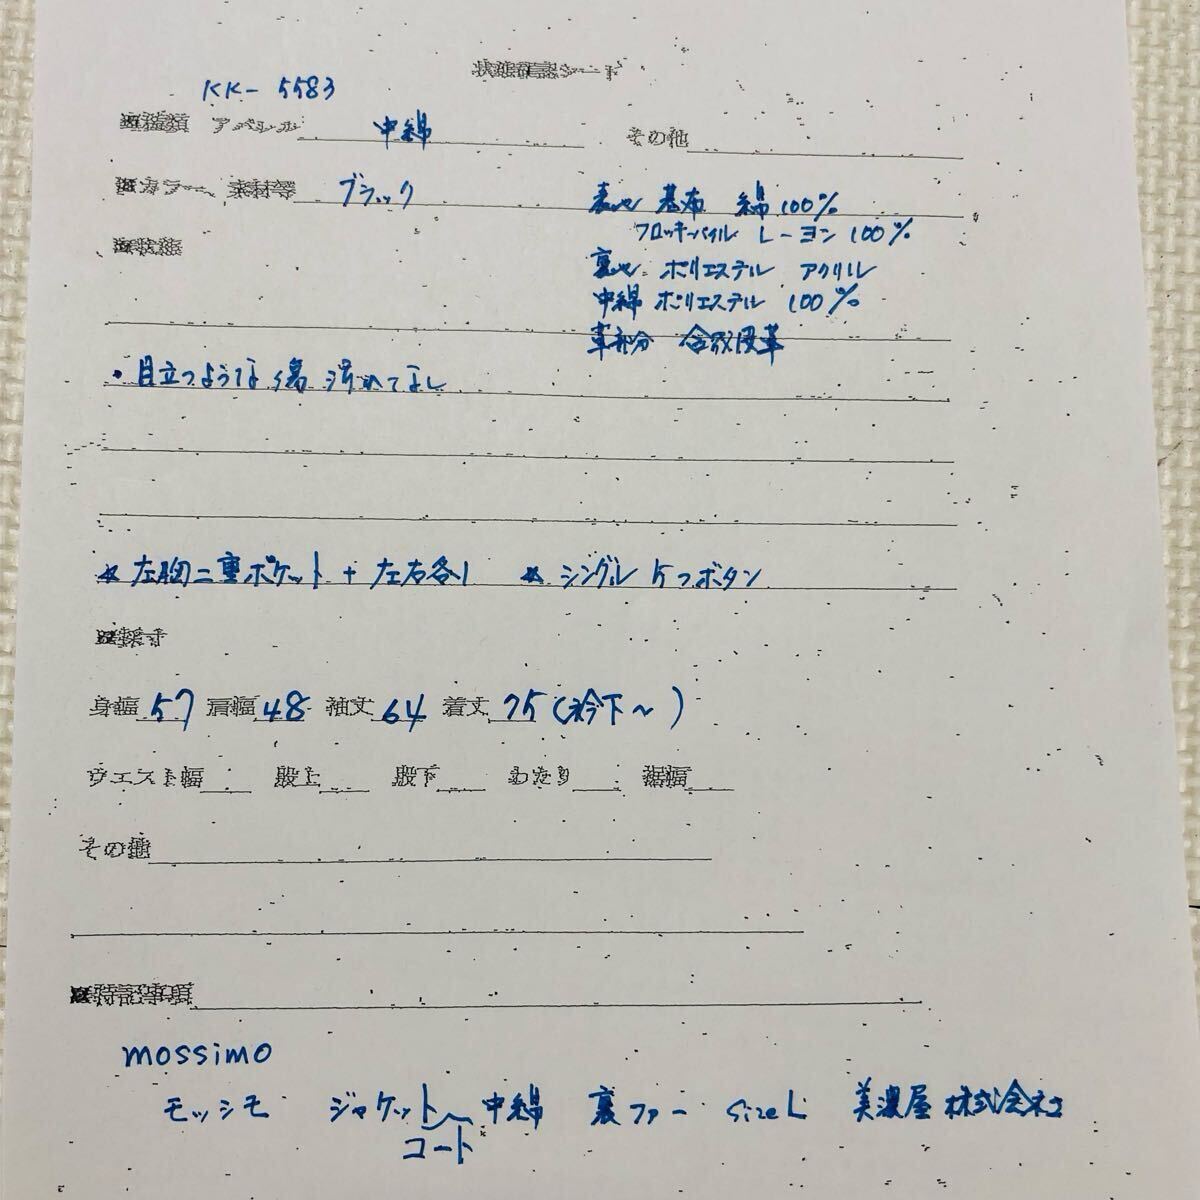 状態確認シート
KK- 5583
■種類 アパレル 中綿 その他
■カラー、素材等 ブラック 表地 基布 綿 100%
フロッキーパイル レーヨン 100%
■状態
裏地 ポリエステル アクリル
中綿 ポリエステル 100%
革部分 合成皮革
・目立つような傷 汚れてなし
☆ 左胸二重ポケット + 左右各1 ☆ シングル 5つボタン
■採寸
身幅 57 肩幅 48 袖丈 64 着丈 75 (衿下～)
ウエスト幅 股上 股下 わたり 裾幅
その他
■特記事項
mossimo
モッシモ ジャケット 中綿 裏ファー size L 美濃屋株式会社
コート